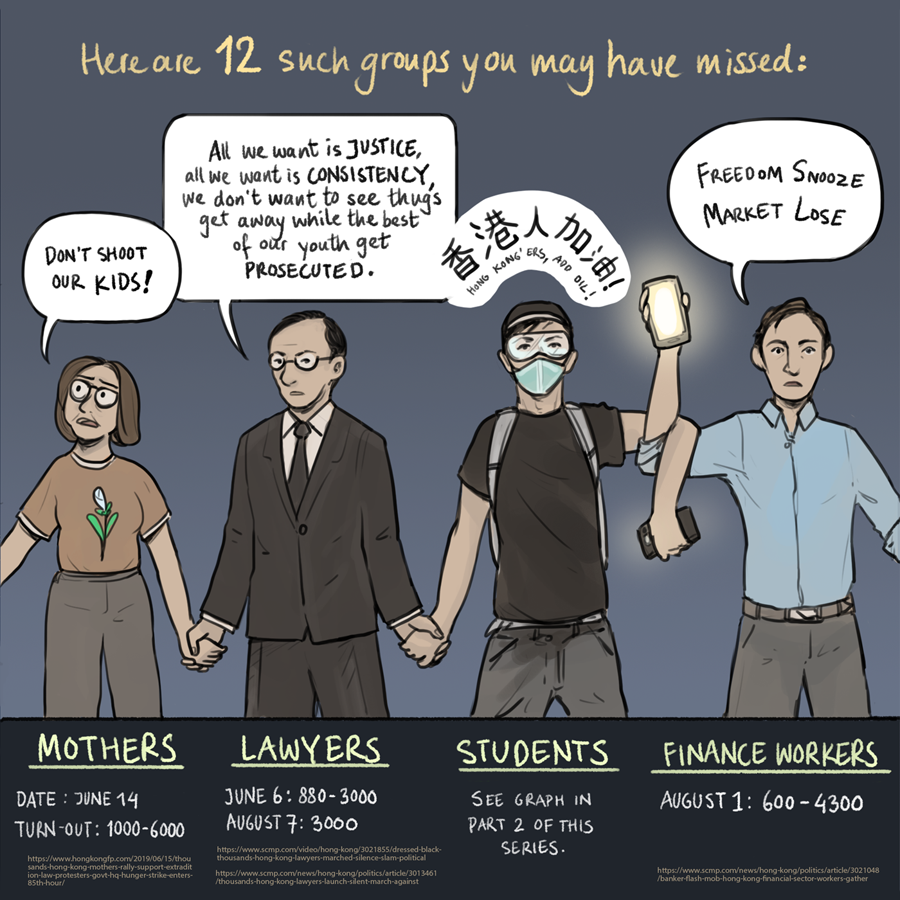 Here are 12 such groups you may have missed:
DON'T SHOOT
OUR KIDS!
All we want is JUSTICE,
all we want is CONSISTENCY,
we don't want to see thugs
get away while the best
of our youth get
PROSECUTED.
香港人加油!!
HONG KONG'ERS, ADD OIL!
FREEDOM SNOOZE
MARKET LOSE
MOTHERS
DATE: JUNE 14
TURN-OUT: 1000-6000
https://www.hongkongfp.com/2019/06/15/thou
sands-hong-kong-mothers-rally-support-extradit
ion-law-protesters-govt-hq-hunger-strike-enters-
85th-hour/
LAWYERS
JUNE 6: 880-3000
AUGUST 7: 3000
https://www.scmp.com/video/hong-kong/3021855/dressed-black-
thousands-hong-kong-lawyers-marched-silence-slam-political
https://www.scmp.com/news/hong-kong/politics/article/3013461
/thousands-hong-kong-lawyers-launch-silent-march-against
STUDENTS
SEE GRAPH IN
PART 2 OF THIS
SERIES.
FINANCE WORKERS
AUGUST 1: 600-4300
https://www.scmp.com/news/hong-kong/politics/article/3021048
/banker-flash-mob-hong-kong-financial-sector-workers-gather